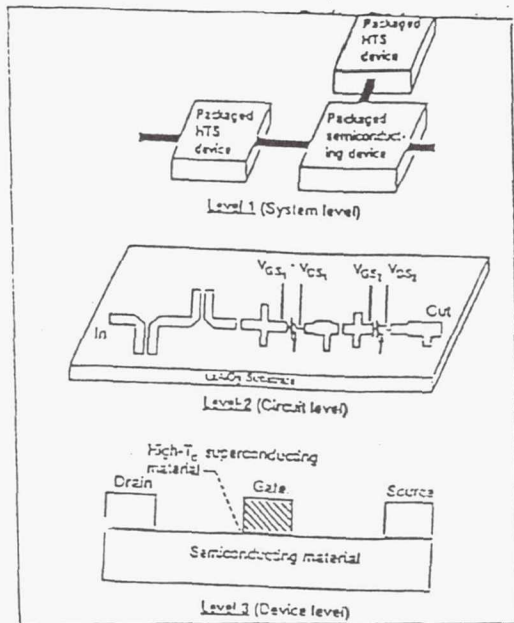 Packaged
HTS
device
Packaged
HTS
device
Packaged
semiconduct-
ing device
Level 1 (System level)
VGS1 VDS1 VGS2 VDS2
In
Out
Substrate
Level 2 (Circuit level)
High-Tc superconducting
material
Drain
Gate
Source
Semiconducting material
Level 3 (Device level)